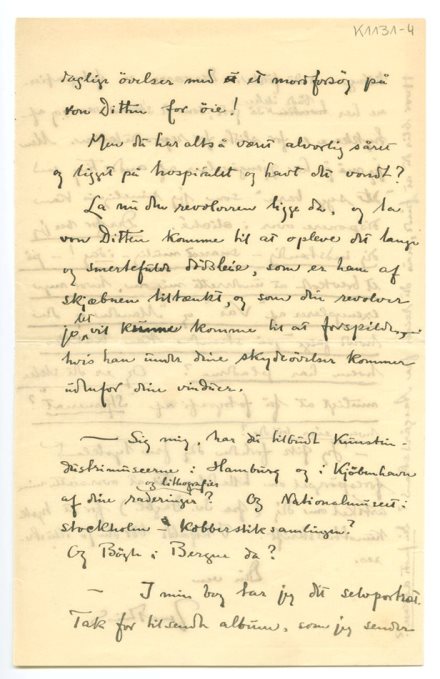 K1131-4
daglige övelser med et mordforsøg på
von Ditten for øie!
Men du har altså været alvorlig såret
og ligget på hospitalet og havt det vondt?
La nu den revolveren ligge da, og la
von Ditten komme til at opleve det lange
og smertefulde dödsleie, som er ham af
skjæbnen tiltænkt, og som din revolver
jo let vil kunne komme til at forspilde,
hvis han under dine skydeövelser kommer
udenfor dine vinduer.
— Sig mig, har du tilbudt Kunstin-
dustrimuseerne i Hamburg og i Kjöbenhavn
og lithografier
af dine raderinger? Og Nationalmuseet i
Stockholm – Kobberstiksamlingen?
Og Bögh i Bergen da?
— I min bog har jeg dit selvportræt.
Tak for tilsendte album, som jeg sender